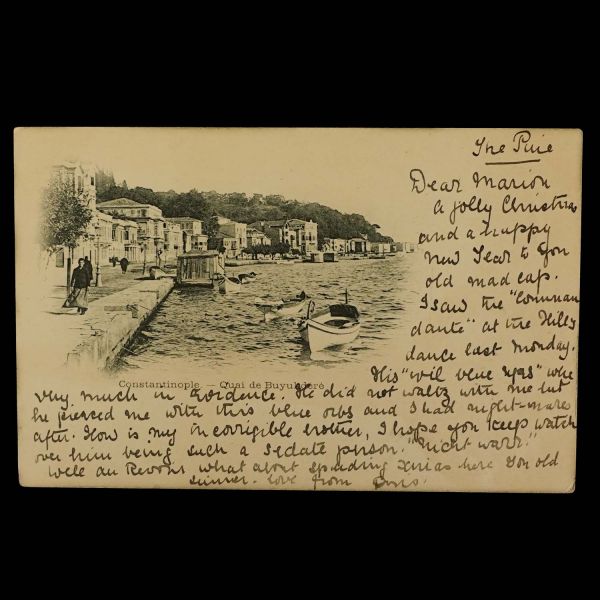 The Pine
Dear Marion
a jolly Christmas
and a happy
new Year to you
old mad cap.
I saw the "Comman
dante" at the Hills
dance last Monday.
His "wil blue eyes" whe
very much in evidence. He did not waltz with me but
he pierced me with this blue orbs and I had night-mare
after. How is my incorrigible brother, I hope you keep watch
over him being such a sedate person.
well au Revoir what about spending Xmas here you old
sinner. love from
Constantinople. — Quai de Buyukdéré